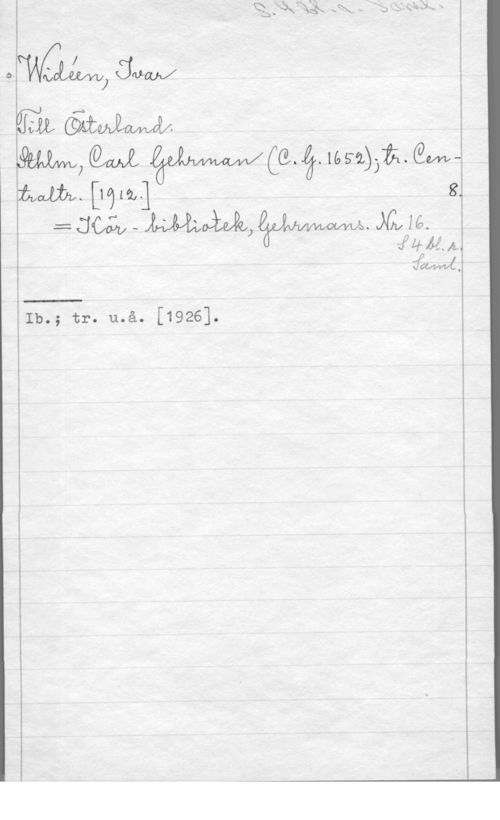 S. 4 bl. a. Saml.
Widéen, Ivar
Till Österland.
Sthlm, Carl Gehrman (C. G. 1652); tr. Cen-
traltr. [1912.] 8.
= Kör-bibliotek, Gehrmans. Nr 16.
S 4 bl. a.
Saml.
Ib.; tr. u.å. [1926].